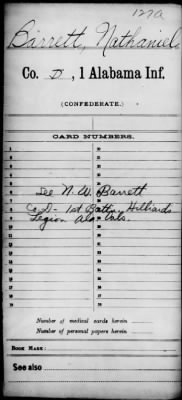 127a
Barrett, Nathaniel
Co. D, 1 Alabama Inf.
(CONFEDERATE.)
CARD NUMBERS.
See N. W. Barrett
Co D - 1st Battn. Hilliards
Legion Ala Vols.
Number of medical cards herein
Number of personal papers herein
BOOK MARK:
See also